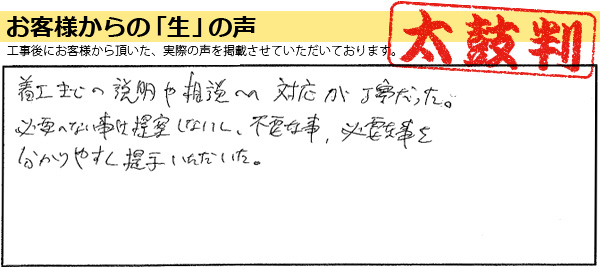 お客様からの「生」の声
工事後にお客様から頂いた、実際の声を掲載させていただいております。
太鼓判
着工までの説明や相談への対応が丁寧だった。
必要のない事は提案しないし、不要な事、必要な事を
分かりやすく提示いただいた。